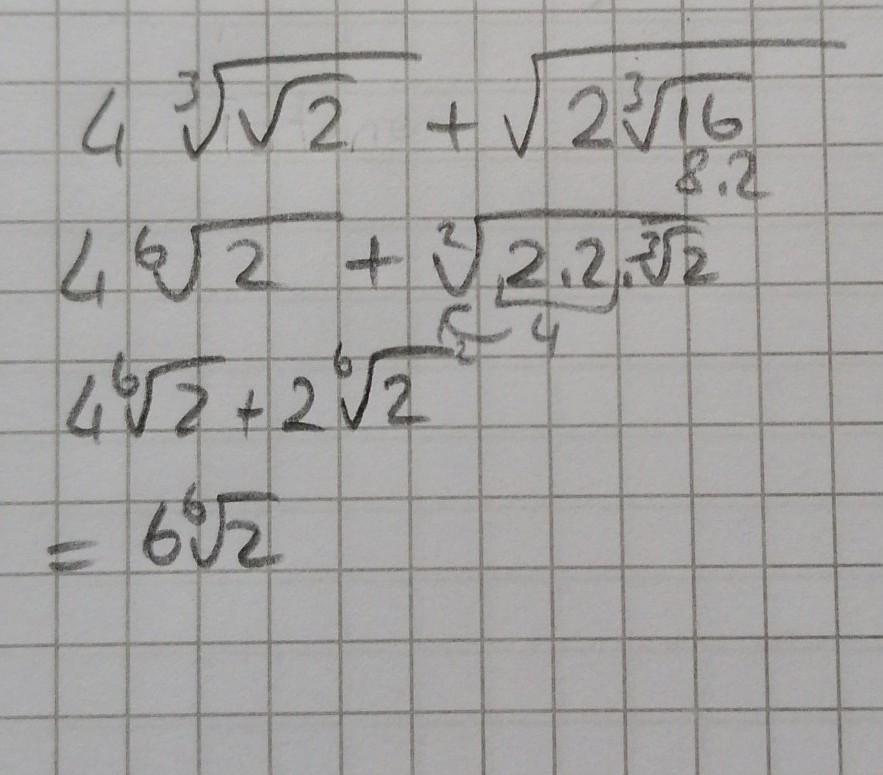 4 ∛√2 + √(2 ∛16)
8.2
4 ⁶√2 + ²√(2.2.∛2)
2 4
4 ⁶√2 + 2 ⁶√2
= 6 ⁶√2